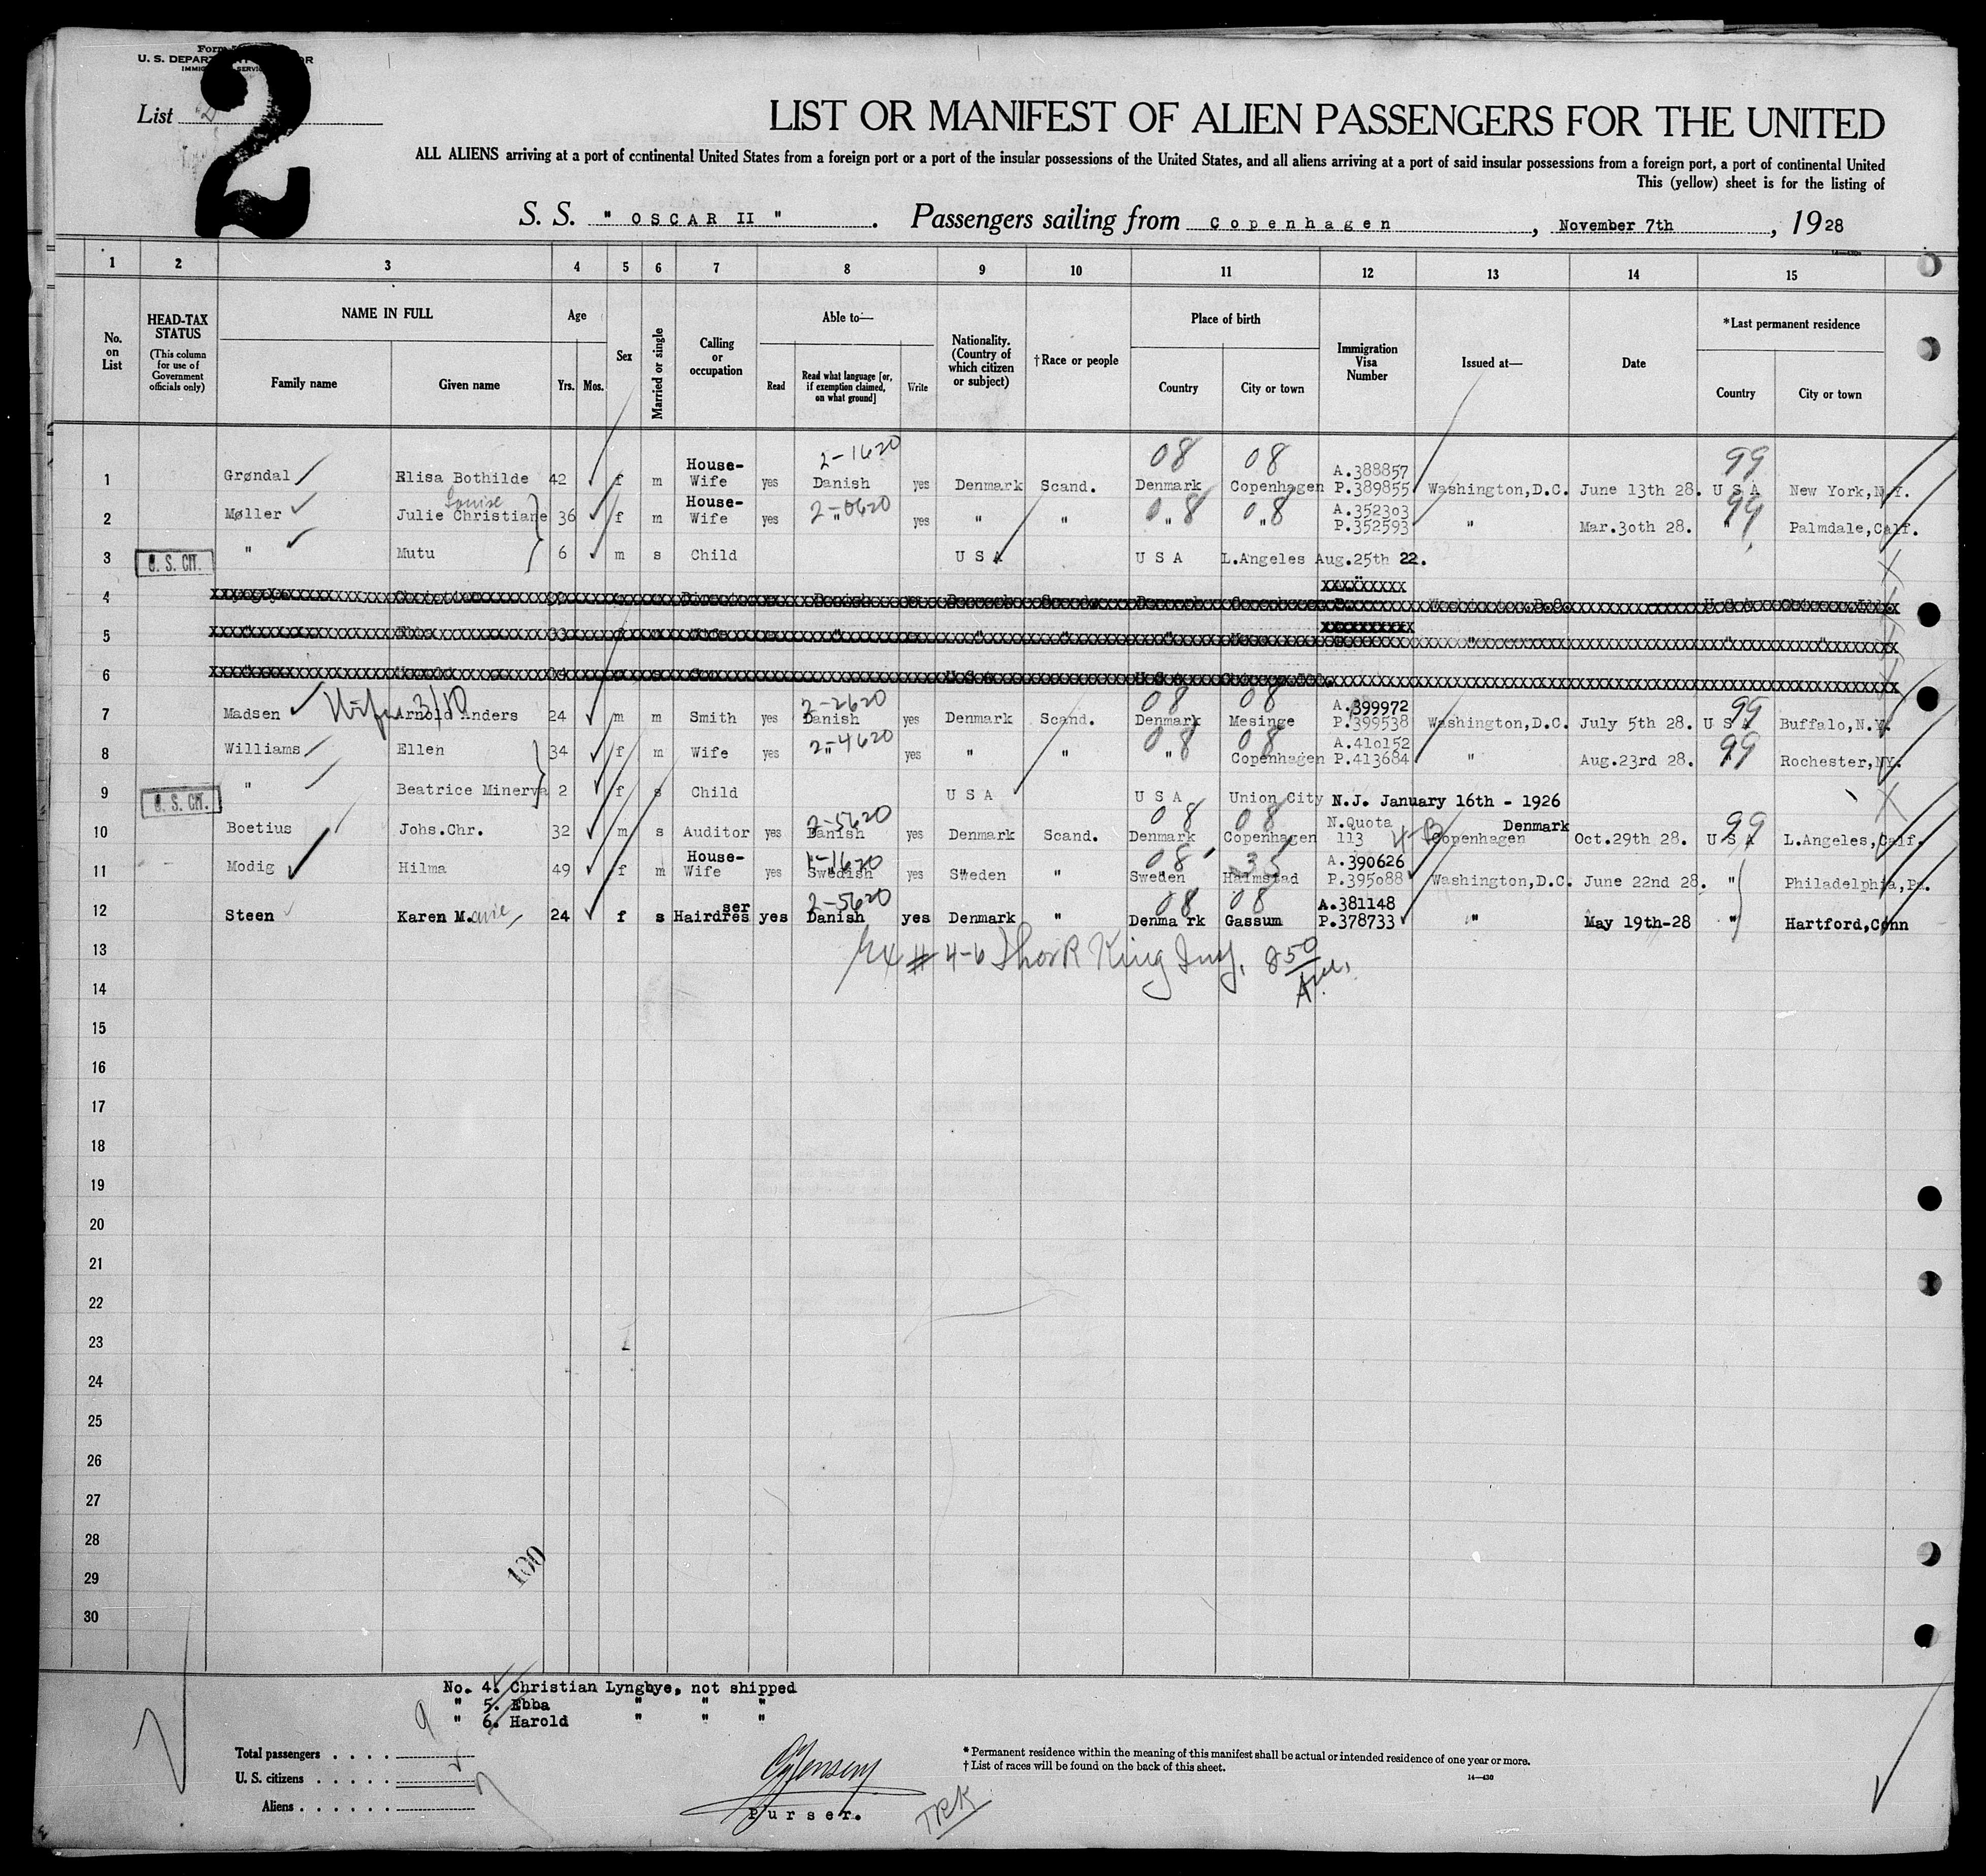 Form
U. S. DEPARTMENT OF LABOR
IMMIGRATION SERVICE
List
2
LIST OR MANIFEST OF ALIEN PASSENGERS FOR THE UNITED
ALL ALIENS arriving at a port of continental United States from a foreign port or a port of the insular possessions of the United States, and all aliens arriving at a port of said insular possessions from a foreign port, a port of continental United
This (yellow) sheet is for the listing of
S. S. " OSCAR II " . Passengers sailing from Copenhagen , November 7th , 19 28
14—430
1 2 3 4 5 6 7 8 9 10 11 12 13 14 15
No. on List
HEAD-TAX STATUS (This column for use of Government officials only)
NAME IN FULL Family name Given name
Age Yrs. Mos.
Sex
Married or single
Calling or occupation
Able to— Read Read what language [or, if exemption claimed, on what ground] Write
Nationality. (Country of which citizen or subject)
†Race or people
Place of birth Country City or town
Immigration Visa Number
Issued at—
Date
*Last permanent residence Country City or town
2-1620 08 08 99
1 Grøndal Elisa Bothilde 42 f m House-Wife yes Danish yes Denmark Scand. Denmark Copenhagen A.388857 P.389855 Washington,D.C. June 13th 28. U S A New York,N.Y.
Louise 2-0620 08 08 99
2 Møller Julie Christiane 36 f m House-Wife yes " yes " " " " A.352303 P.352593 " Mar.30th 28. " Palmdale,Calf.
3 U. S. CIT. " Mutu 6 m s Child U S A U S A L.Angeles Aug.25th 22.
4
5
6
Wife 3/10 2-2620 08 08 99
7 Madsen Arnold Anders 24 m m Smith yes Danish yes Denmark Scand. Denmark Mesinge A.399972 P.399538 Washington,D.C. July 5th 28. U S A Buffalo,N.Y.
2-4620 08 08 99
8 Williams Ellen 34 f m Wife yes " yes " " " Copenhagen A.410152 P.413684 " Aug.23rd 28. " Rochester,NY.
9 U. S. CIT. " Beatrice Minerva 2 f s Child U S A U S A Union City N.J. January 16th - 1926
2-5620 08 08 99
10 Boetius Johs.Chr. 32 m s Auditor yes Danish yes Denmark Scand. Denmark Copenhagen N.Quota 113 4-B Copenhagen Denmark Oct.29th 28. U S A L.Angeles,Calf.
1-1620 08 35
11 Modig Hilma 49 f m House-Wife yes Swedish yes Sweden " Sweden Halmstad A.390626 P.395088 Washington,D.C. June 22nd 28. " Philadelphia,Pa.
2-5620 08 08
12 Steen Karen M.arie 24 f s Hairdresser yes Danish yes Denmark " Denma rk Gassum A.381148 P.378733 " May 19th-28 " Hartford,Conn
13 # 4-6 Thor R King
14
15
16
17
18
19
20
21
22
23
24
25
26
27
28
29
30
100
No. 4. Christian Lyngbye, not shipped
" 5. Ebba " " "
" 6. Harold " " "
9
Total passengers . . . .
U. S. citizens . . . . .
Aliens . . . . . .
Jensen
Purser.
TRK
* Permanent residence within the meaning of this manifest shall be actual or intended residence of one year or more.
† List of races will be found on the back of this sheet.
14—430